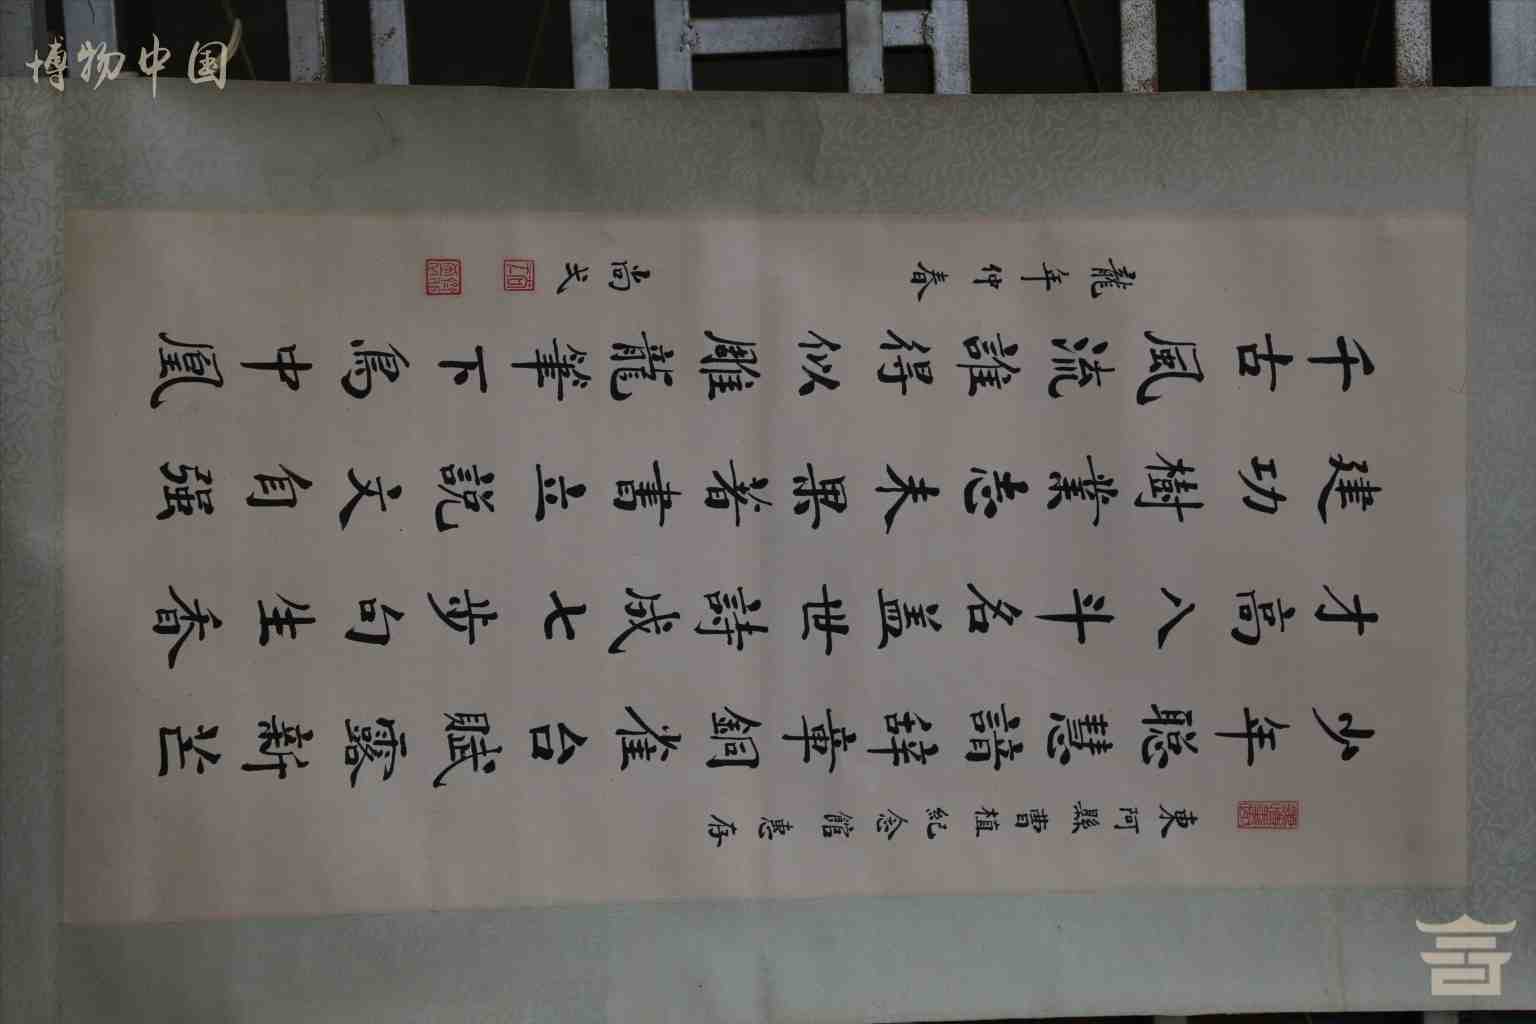 博物中国
東阿縣曹植紀念館惠存
少年聪慧諳辞章銅雀台賦露新芒
才高八斗名盖世詩成七步句生香
建功樹業志未果著書立説文自强
千古風流誰得似雕龍筆下鳥中凰
龍年仲春 尚